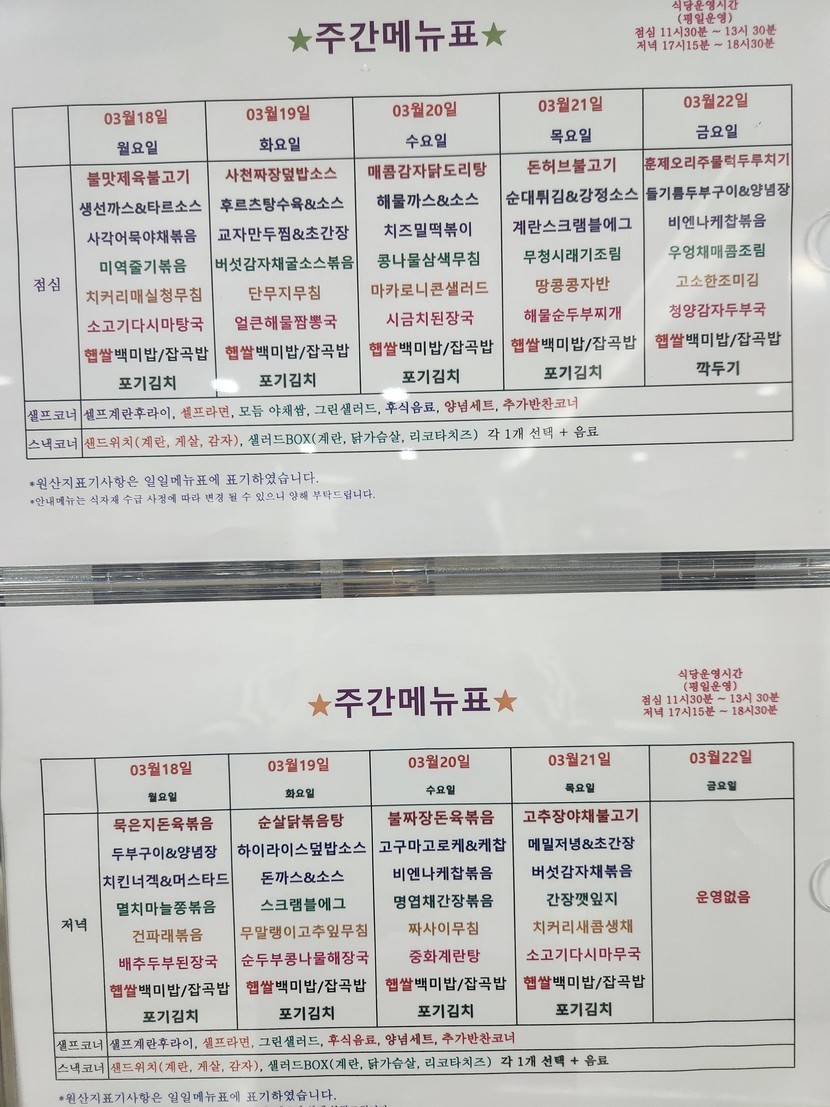 ★주간메뉴표★
식당운영시간
(평일운영)
점심 11시30분 ~ 13시 30분
저녁 17시15분 ~ 18시30분
03월18일 03월19일 03월20일 03월21일 03월22일
월요일 화요일 수요일 목요일 금요일
점심
불맛제육불고기 사천짜장덮밥소스 매콤감자닭도리탕 돈허브불고기 훈제오리주물럭두루치기
생선까스&타르소스 후르츠탕수육&소스 해물까스&소스 순대튀김&강정소스 들기름두부구이&양념장
사각어묵야채볶음 교자만두찜&초간장 치즈밀떡볶이 계란스크램블에그 비엔나케찹볶음
미역줄기볶음 버섯감자채굴소스볶음 콩나물삼색무침 무청시래기조림 우엉채매콤조림
치커리매실청무침 단무지무침 마카로니콘샐러드 땅콩콩자반 고소한조미김
소고기다시마탕국 얼큰해물짬뽕국 시금치된장국 해물순두부찌개 청양감자두부국
햅쌀백미밥/잡곡밥 햅쌀백미밥/잡곡밥 햅쌀백미밥/잡곡밥 햅쌀백미밥/잡곡밥 햅쌀백미밥/잡곡밥
포기김치 포기김치 포기김치 포기김치 깍두기
샐프코너 셀프계란후라이, 셀프라면, 모듬 야채쌈, 그린샐러드, 후식음료, 양념세트, 추가반찬코너
스낵코너 샌드위치(계란, 게살, 감자), 샐러드BOX(계란, 닭가슴살, 리코타치즈) 각 1개 선택 + 음료
*원산지표기사항은 일일메뉴표에 표기하였습니다.
*안내메뉴는 식자재 수급 사정에 따라 변경 될 수 있으니 양해 부탁드립니다.
★주간메뉴표★
식당운영시간
(평일운영)
점심 11시30분 ~ 13시 30분
저녁 17시15분 ~ 18시30분
03월18일 03월19일 03월20일 03월21일 03월22일
월요일 화요일 수요일 목요일 금요일
저녁
묵은지돈육볶음 순살닭볶음탕 불짜장돈육볶음 고추장야채불고기
두부구이&양념장 하이라이스덮밥소스 고구마고로케&케찹 메밀저녁&초간장
치킨너겟&머스타드 돈까스&소스 비엔나케찹볶음 버섯감자채볶음
멸치마늘쫑볶음 스크램블에그 명엽채간장볶음 간장깻잎지
운영없음
건파래볶음 무말랭이고추잎무침 짜사이무침 치커리새콤생채
배추두부된장국 순두부콩나물해장국 중화계란탕 소고기다시마무국
햅쌀백미밥/잡곡밥 햅쌀백미밥/잡곡밥 햅쌀백미밥/잡곡밥 햅쌀백미밥/잡곡밥
포기김치 포기김치 포기김치 포기김치
샐프코너 셀프계란후라이, 셀프라면, 그린샐러드, 후식음료, 양념세트, 추가반찬코너
스낵코너 샌드위치(계란, 게살, 감자), 샐러드BOX(계란, 닭가슴살, 리코타치즈) 각 1개 선택 + 음료
*원산지표기사항은 일일메뉴표에 표기하였습니다.